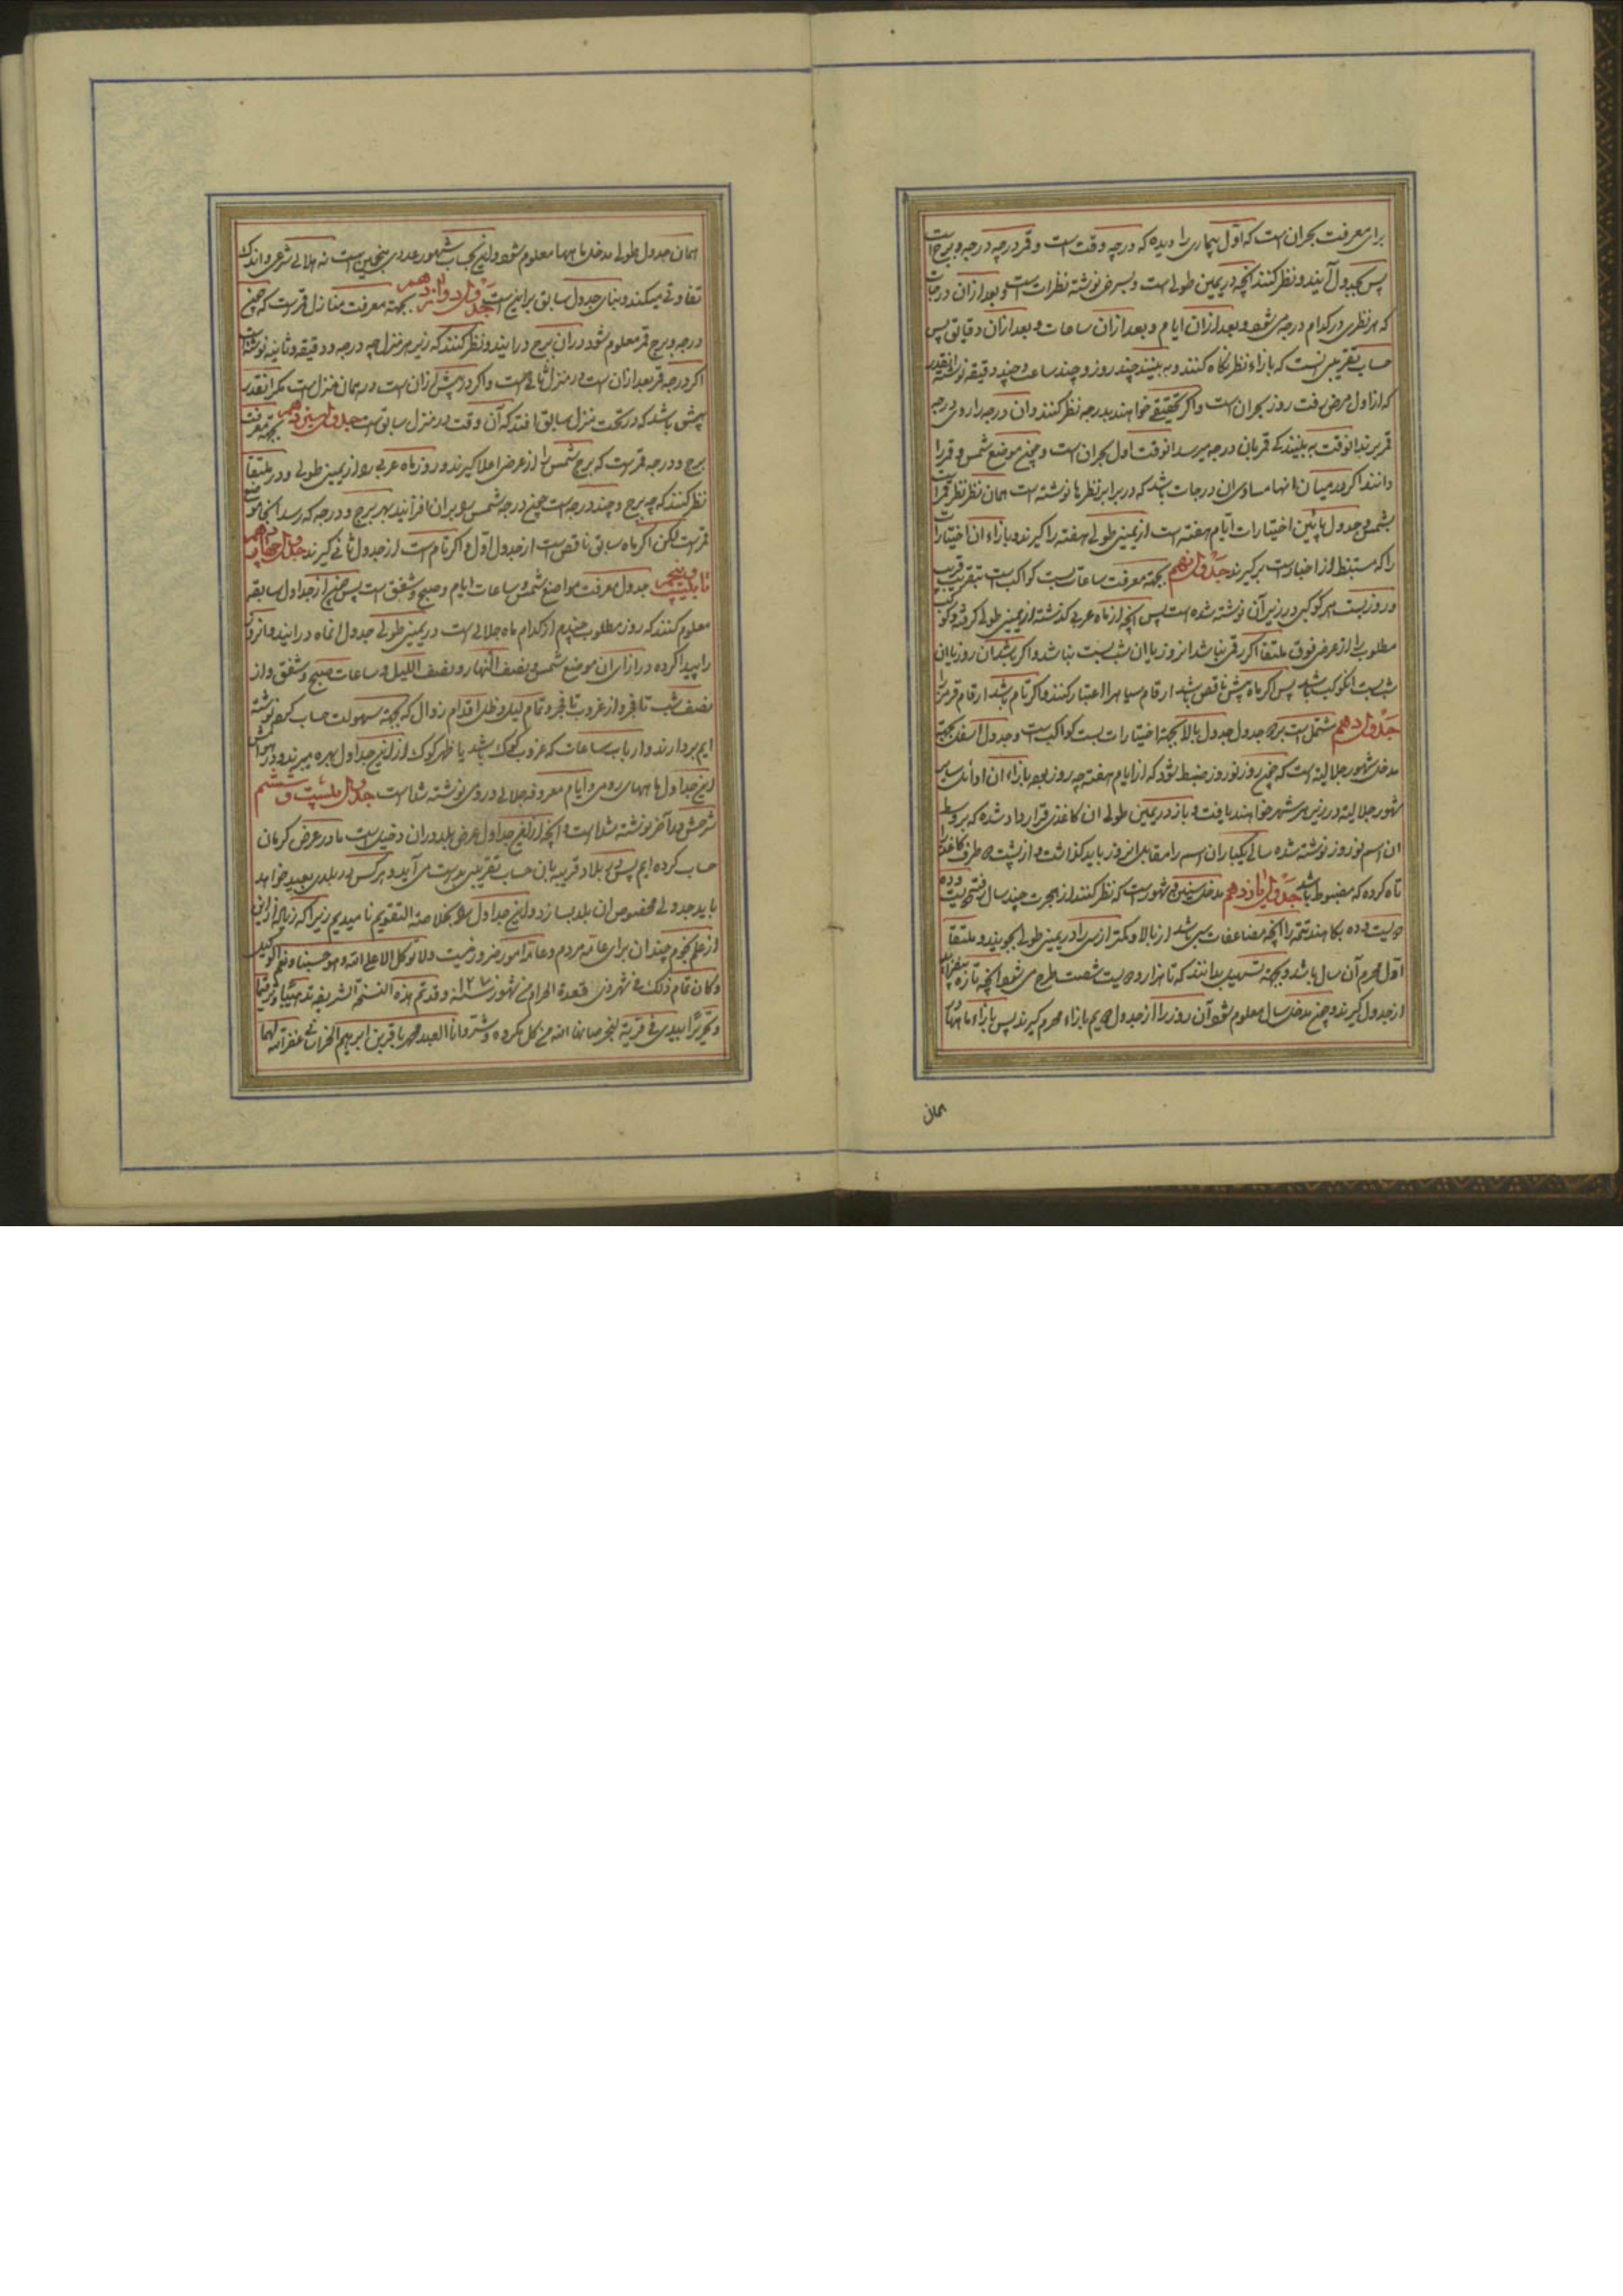 برای معرفت بحران است که اول بیماری را دیده که درچه وقت است و قمر درچه درجه و برج است
پس بجدول آیند و نظر کنند آنچه در یمین طولی است و بسرخی نوشته نظرات است و بعد ازان درجات
که هر نظری در کدام درجه می شود و بعد ازان ایام و بعد ازان ساعات و بعد ازان دقایق پس
حساب تقریبی آنست که بازاء نظر نگاه کنند و به بینند چند روز و چند ساعت و چند دقیقه نوشته انقدر
که از اول مرض رفت روز بحران است و اگر تحقیقی خواهند بدرجه نظر کنند و ان درجه را روی درجه
قمر برند انوقت به بینند کی قمر بان درجه میرسد انوقت اول بحران است و چنین موضع شمس و قمر را
دانند اگر در میان انها مساوی ان درجات باشد که در برابر نظرها نوشته است همان نظر نظر قمر است
بشمس و جدول پائین اختیارات ایام هفته است از یمین طولی هفته را گیرند و بازاء ان اختیارات
را که مستنبط از اخبار است برگیرند جدول نهم بجهة معرفت ساعات بست کواکب است بتقریب قریب
و روز بست هر کوکبی در زیر آن نوشته شده است پس آنچه از ماه عربی گذشته از یمین طولی گرفته و کوکب
مطلوب را از عرض فوق ملتقا اگر رقمی نباشد انروز یا ان شب بست نباشد و اگر باشد ان روز یا ان
شب بست انکوکب باشد پس اگر ماه پیش ناقص باشد ارقام سیاهرا اعتبار کنند و اگر تام باشد ارقام قرمز را
جدول دهم مشتمل است بر دو جدول جدول بالا بجهة اختیارات بست کواکب است و جدول اسفل بجهة
مدخل شهور جلالیة است که چون روز نوروز ضبط شود که از ایام هفته چه روز بود بازاء ان اوائل سایر
شهور جلالیة در زیر هر شهر خواهند یافت و باز در یمین طولی ان کاغذی قرار داده شده که بر وسط
ان اسم نوروز نوشته شده سالی یکبار ان اسم را مقابل انروز باید گذاشت و از پشت دو طرف کاغذ را
تاه کرده که مضبوط باشد جدول یازدهم مدخل سنین و شهور است که نظر کنند از هجرت چند سال رفته دویست و ده
دویست و ده بکاهند تتمه را آنچه مضاعفات سی باشد از بالا و کمتر از سی را در یمین طولی بجویند و ملتقا
اول محرم آن سال باشد و بجهة تسهیل بدانند که تا هزار و دویست شصت طرح می شود آنچه تازه بیفزاید
از جدول گیرند و چون مدخل سال معلوم شود آن روز را از جدول دویم بازاء محرم گیرند پس بازاء ماهها
همان
همان جدول طولی مدخل ماهها معلوم شود و این بحساب شهور عددی منجمین است نه هلالی شرعی و اندک
تفاوتی میکند و بنای جدول سابق بر این است جدول دوازدهم بجهة معرفت منازل قمر است که چون
درجه و برج قمر معلوم شود در ان برج درایند و نظر کنند که زیر هر منزل چه درجه و دقیقه و ثانیه نوشته است
اگر درجه قمر بعد ازان است در منزل ثانی است و اگر در پیش ازان است در همان منزل است مگر انقدر
پیش باشد که در تحت منزل سابق افتد که آن وقت در منزل سابق است جدول سیزدهم بجهة معرفت
برج و درجه قمر است که برج شمس را از عرض اعلا گیرند و روز ماه عربی را از یمین طولی و در ملتقا
نظر کنند که چه برج و چند درجه است چون درجه شمس را بر ان افزایند بهر برج و درجه که رسد انجا موضع
قمر است لکن اگر ماه سابق ناقص است از جدول اول و اگر تام است از جدول ثانی گیرند جدول چهاردهم
تا بیست و پنجم جدول معرفت مواضع شمس و ساعات ایام و صبح و شفق است پس چون از جداول سابقه
معلوم کنند که روز مطلوب چندم از کدام ماه جلالی است در یمین طولی جدول انماه درایند و انروز
را پیدا کرده در ازای ان موضع شمس و نصف النهار و نصف اللیل و ساعات صبح و شفق و از
نصف شب تا فجر و از غروب تا فجر و تمام لیل و ظل اقدام زوال که بجهة سهولت حساب کسرش نوشته
ایم بردارند و ارباب ساعات که غروب کوک باشد یا ظهر کوک از این جداول بهره میبرند و در حواشی
این جداول ماههای رومی و ایام معروفه جلالی و رومی نوشته شده است جدول بیست و ششم
شرحش در آخر نوشته شده است و آنچه از این جداول عرض بلد دران دخیل است ما در عرض کرمان
حساب کرده ایم پس بلاد قریبه بان حساب تقریبی بدست می آید و هر کس در بلدی بعید خواهد
باید جدولی مخصوص ان بلد بسازد و این جداول را بخلاصة التقویم نامیدیم زیرا که زیاده از این
از علم نجوم چندان برای عامه مردم و عامه امور ضرور نیست و لا توکل الا علی الله و هو حسبنا و نعم الوکیل
و کان تمام ذلک فی شهر ذی قعدة الحرام من شهور سنه ١٢٧ و قد تم هذه النسخة الشریفه تذهیبا و ترقیما
و تحریرا بیدی فی قریة لنجر صانها الله من کل مکروه و شر و انا العبد محمد باقر بن ابرهیم الخراسانی غفر الله لهما